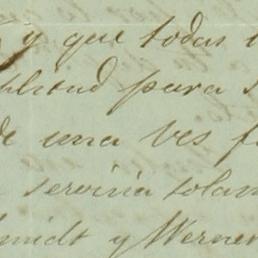 y que todas
para
de una ves
serviria solam
midt y Werner